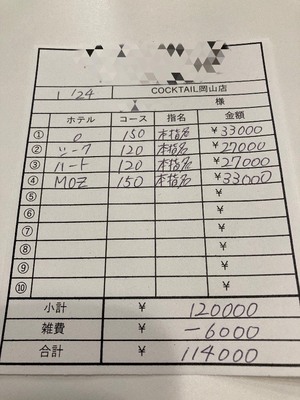 COCKTAIL岡山店
1/24
様
ホテル コース 指名 金額
① O 150 本指名 ¥33000
② シーク 120 本指名 ¥27000
③ ハート 120 本指名 ¥27000
④ MOZ 150 本指名 ¥33000
⑤ ¥
⑥ ¥
⑦ ¥
⑧ ¥
⑨ ¥
⑩ ¥
小計 ¥ 120000
雑費 ¥ -6000
合計 ¥ 114000